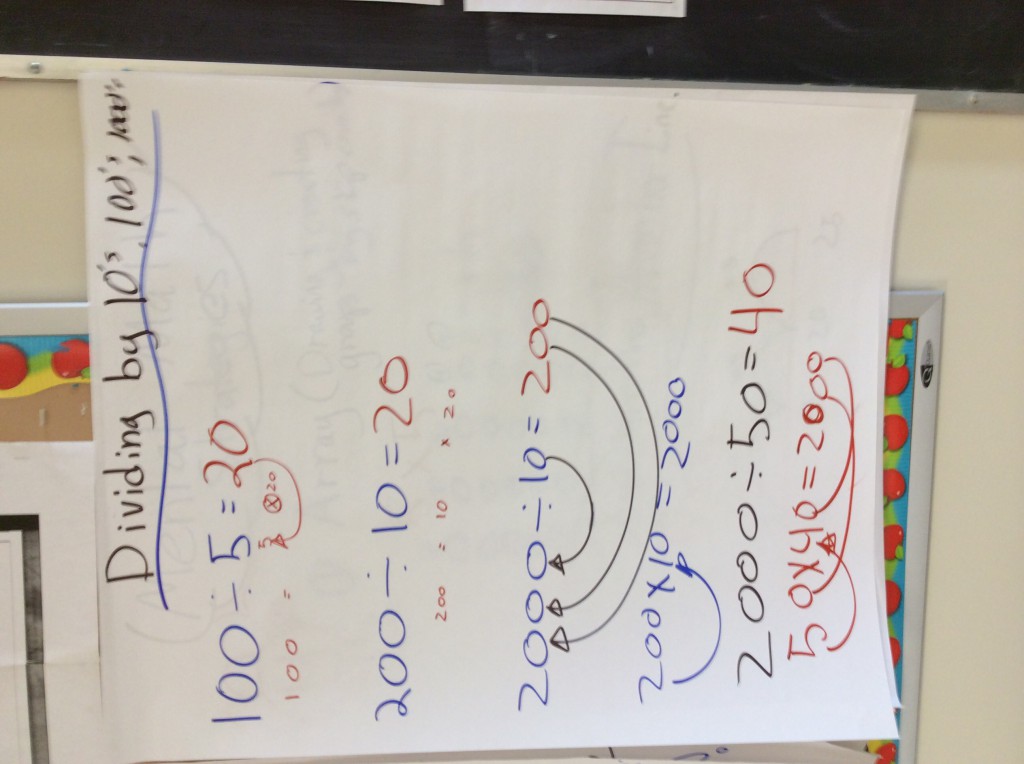 Dividing by 10's, 100's, 1000's
100 ÷ 5 = 20
100 = 5 ⊗ 20
200 ÷ 10 = 20
200 = 10 x 20
2000 ÷ 10 = 200
200 x 10 = 2000
2000 ÷ 50 = 40
50 x 40 = 2000